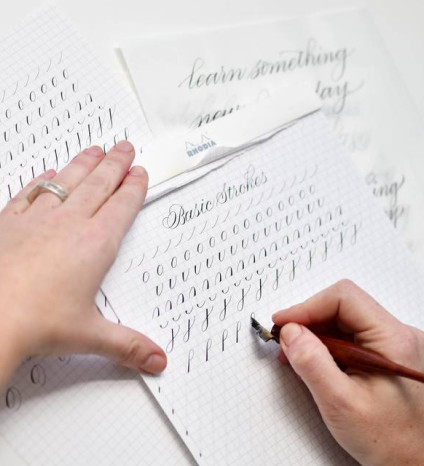 learn something
new
day
RHODIA
Basic Strokes
ing